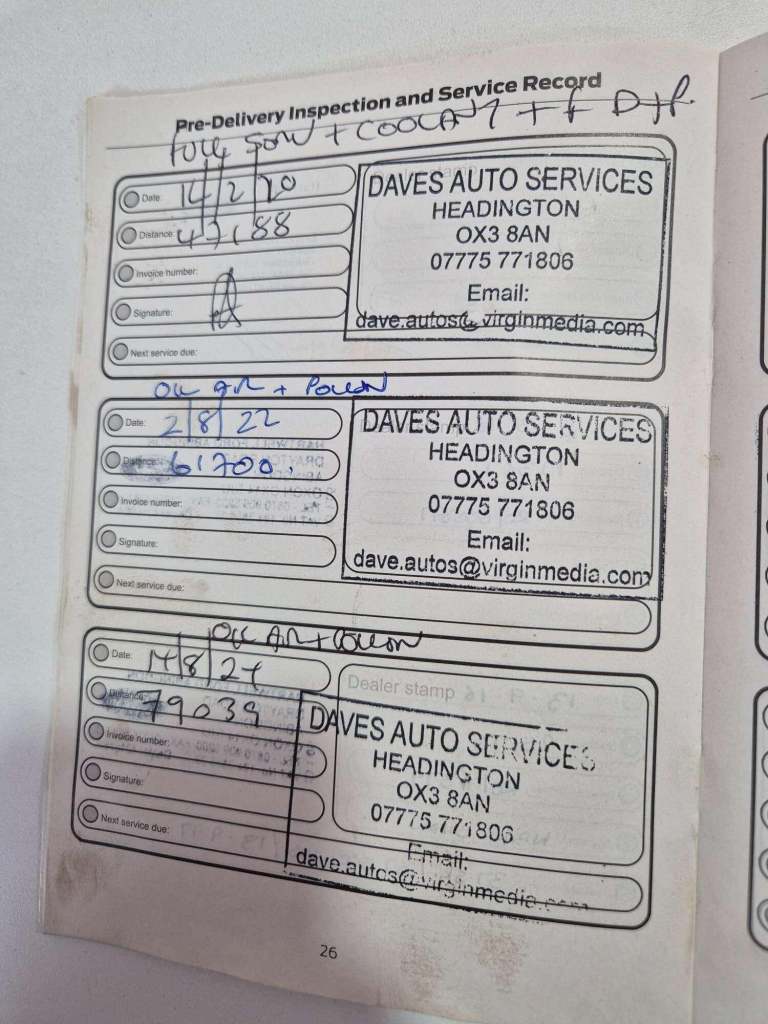 Pre-Delivery Inspection and Service Record
FULL SERV + COOLANT + F
Date: 14/2/20
Distance: 47188
Invoice number:
Signature:
Next service due:
DAVES AUTO SERVICES
HEADINGTON
OX3 8AN
07775 771806
Email:
dave.autos@virginmedia.com
OIL AIR + POLLEN
Date: 2/8/22
Distance: 61700.
Invoice number:
Signature:
Next service due:
DAVES AUTO SERVICES
HEADINGTON
OX3 8AN
07775 771806
Email:
dave.autos@virginmedia.com
OIL AIR + POLLEN
Date: 14/8/24
Distance: 79039
Invoice number:
Signature:
Next service due:
Dealer stamp
DAVES AUTO SERVICES
HEADINGTON
OX3 8AN
07775 771806
Email:
dave.autos@virginmedia.com
26